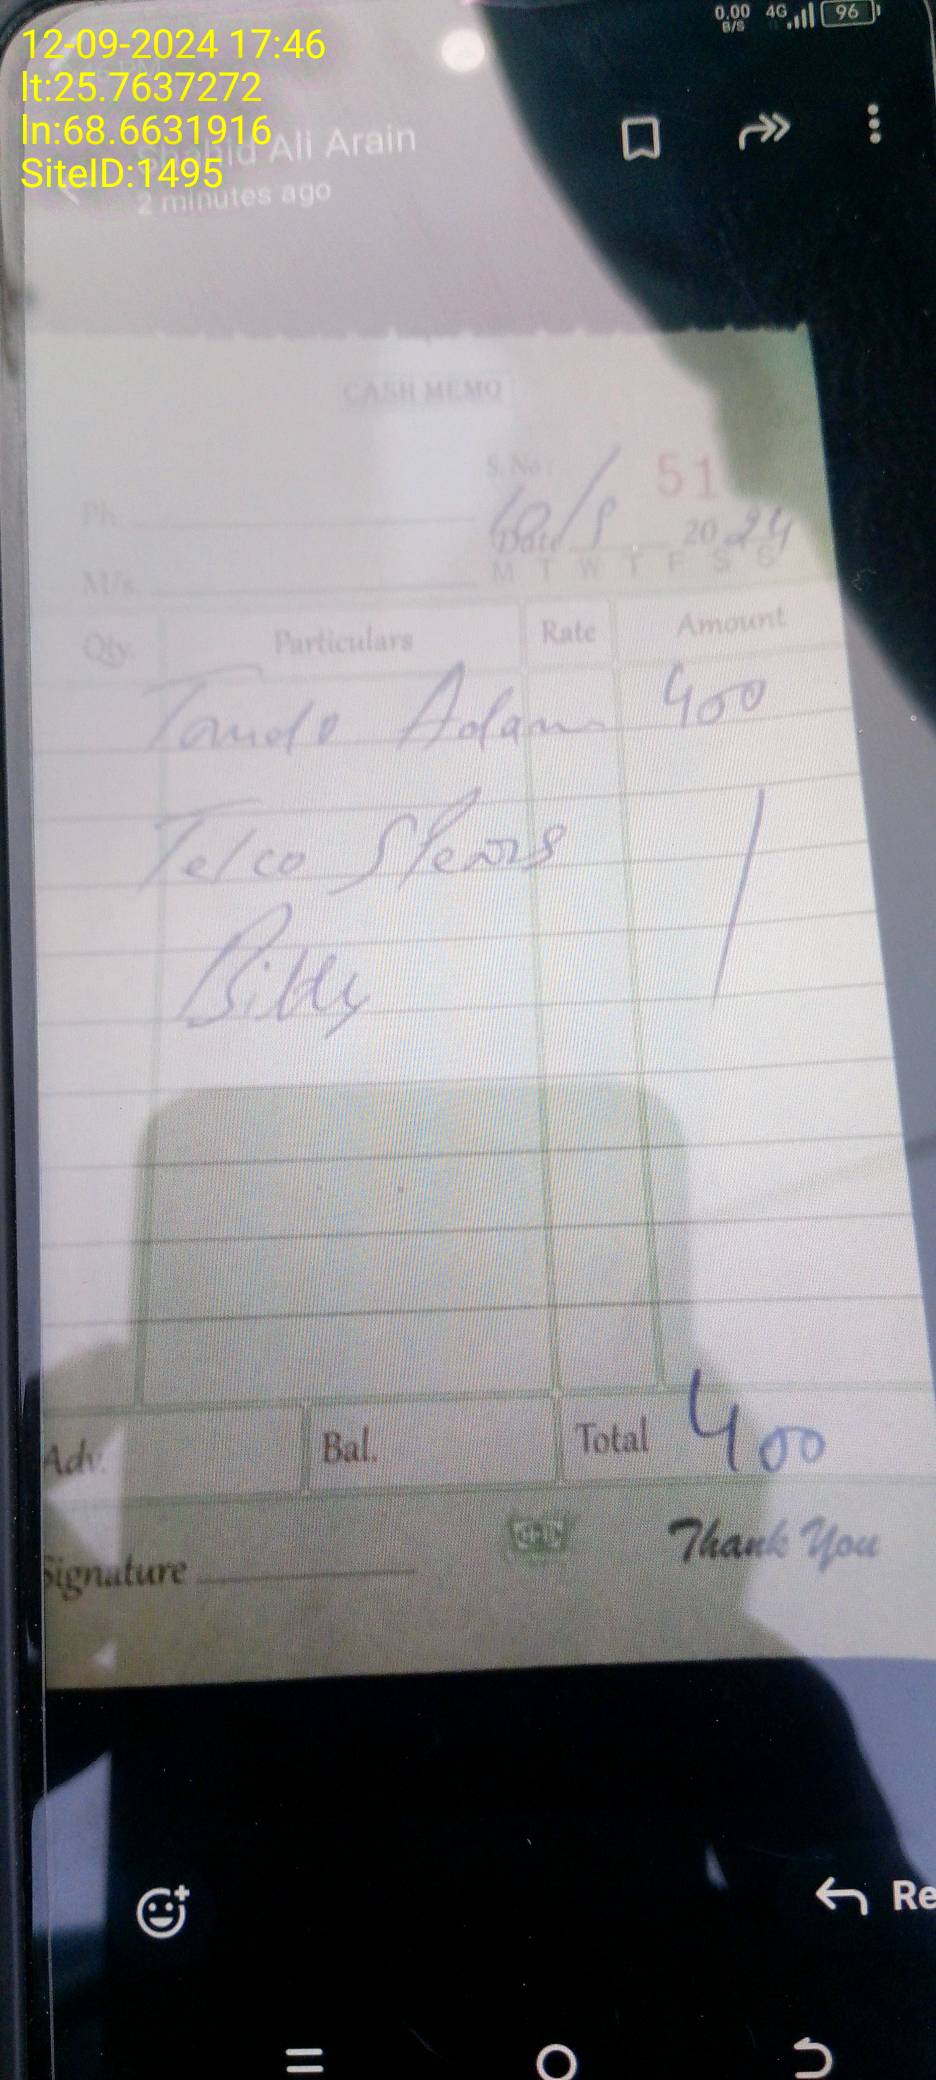 12-09-2024 17:46
lt:25.7637272
ln:68.6631916
SiteID:1495
0.00 B/S 4G 96
Ali Arain
2 minutes ago
CASH MEMO
S. No: 51
Ph.
Date 10/9 2024
M T W T F S S
M/s
Qty. Particulars Rate Amount
Tando Adam 400
Telco
Adv. Bal. Total 400
Signature
Thank You
Re